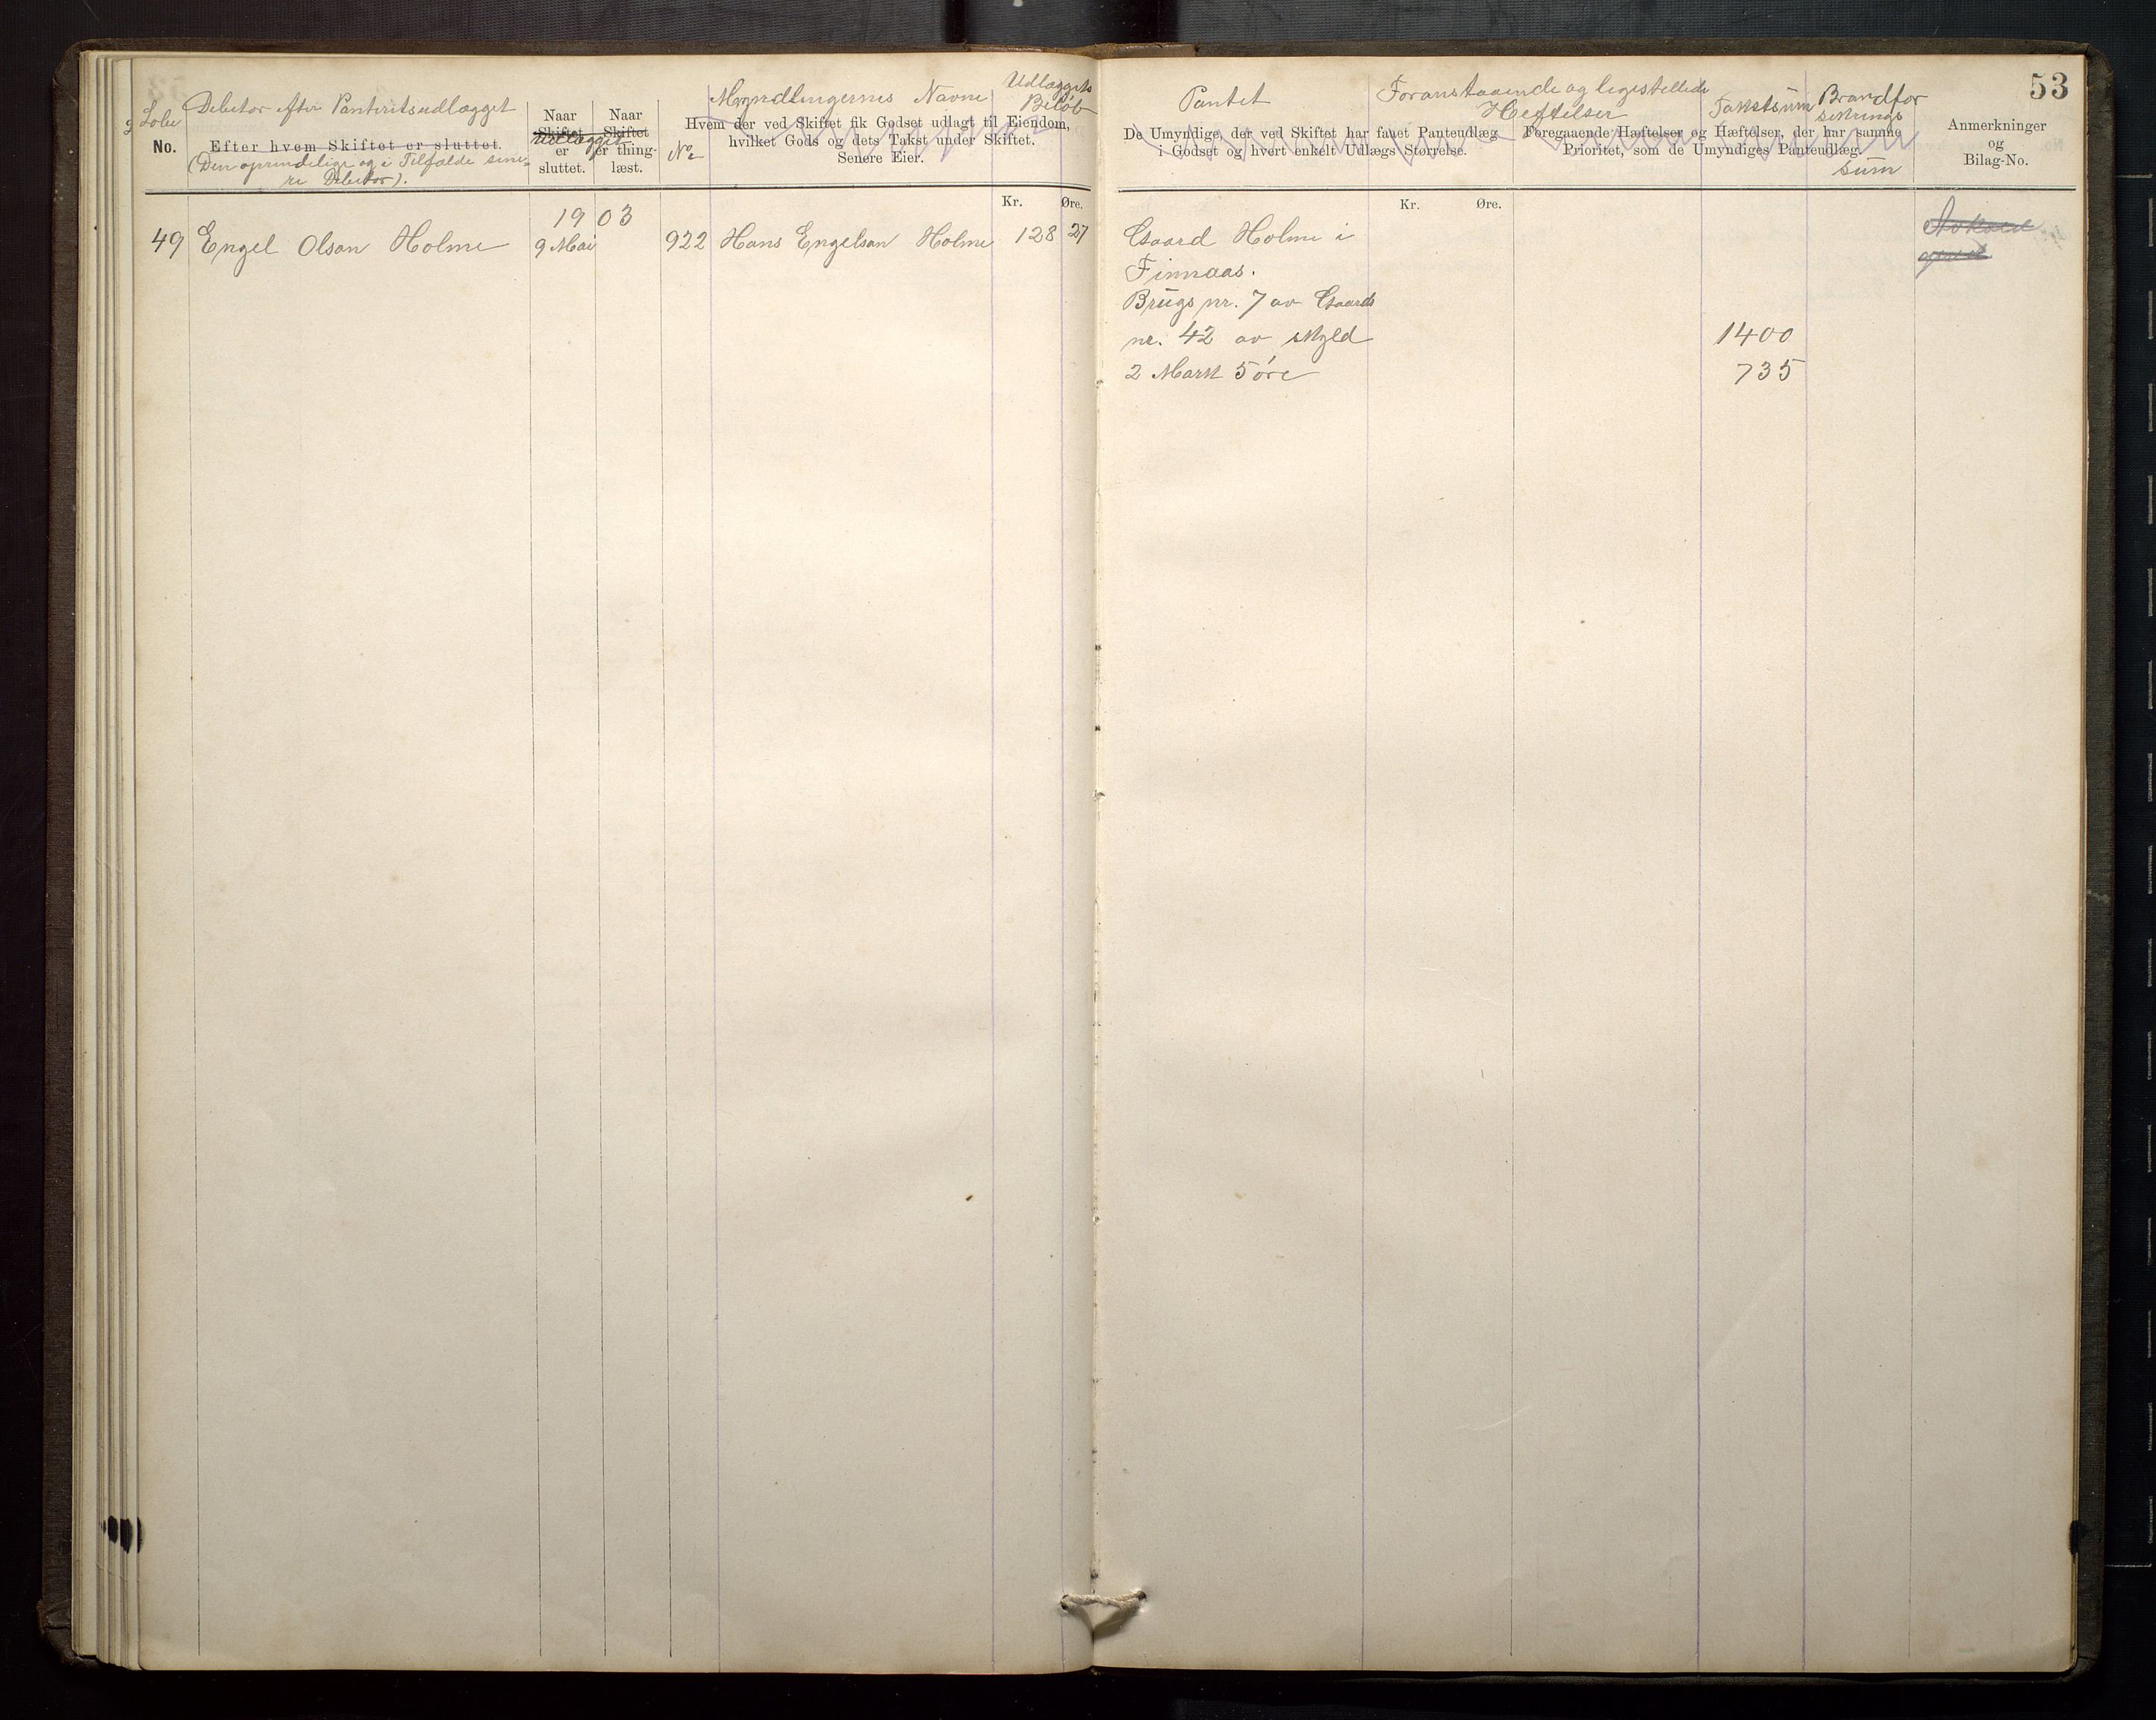 53
Løbe
No.
Debitor efter Panteretsudlægget
Efter hvem Skiftet er sluttet.
(Den oprindelige og i Tilfælde sene-
re Debitor).
Naar
Skiftet
Udlægget
er
sluttet.
Naar
Skiftet
er thing-
læst.
No
Myndlingernes Navne
Udlæggets
Beløb
Hvem der ved Skiftet fik Godset udlagt til Eiendom,
hvilket Gods og dets Takst under Skiftet.
Senere Eier.
Kr. Øre.
Pantet
De Umyndige, der ved Skiftet har faaet Panteudlæg
i Godset og hvert enkelt Udlægs Størrelse.
Kr. Øre.
Foranstaaende og ligestillede
Heftelser
Foregaaende Hæftelser og Hæftelser, der har samme
Prioritet, som de Umyndiges Panteudlæg.
Takstsum
Brandfor
sikrings
sum
Anmerkninger
og
Bilag-No.
1903
49 Engel Olson Holme 9 Mai 922 Hans Engelsen Holme 128 27
Gaard Holme i
Finnaas.
Brugs nr. 7 av Gaards
nr. 42 av skyld 1400
2 Mark 5 øre 735